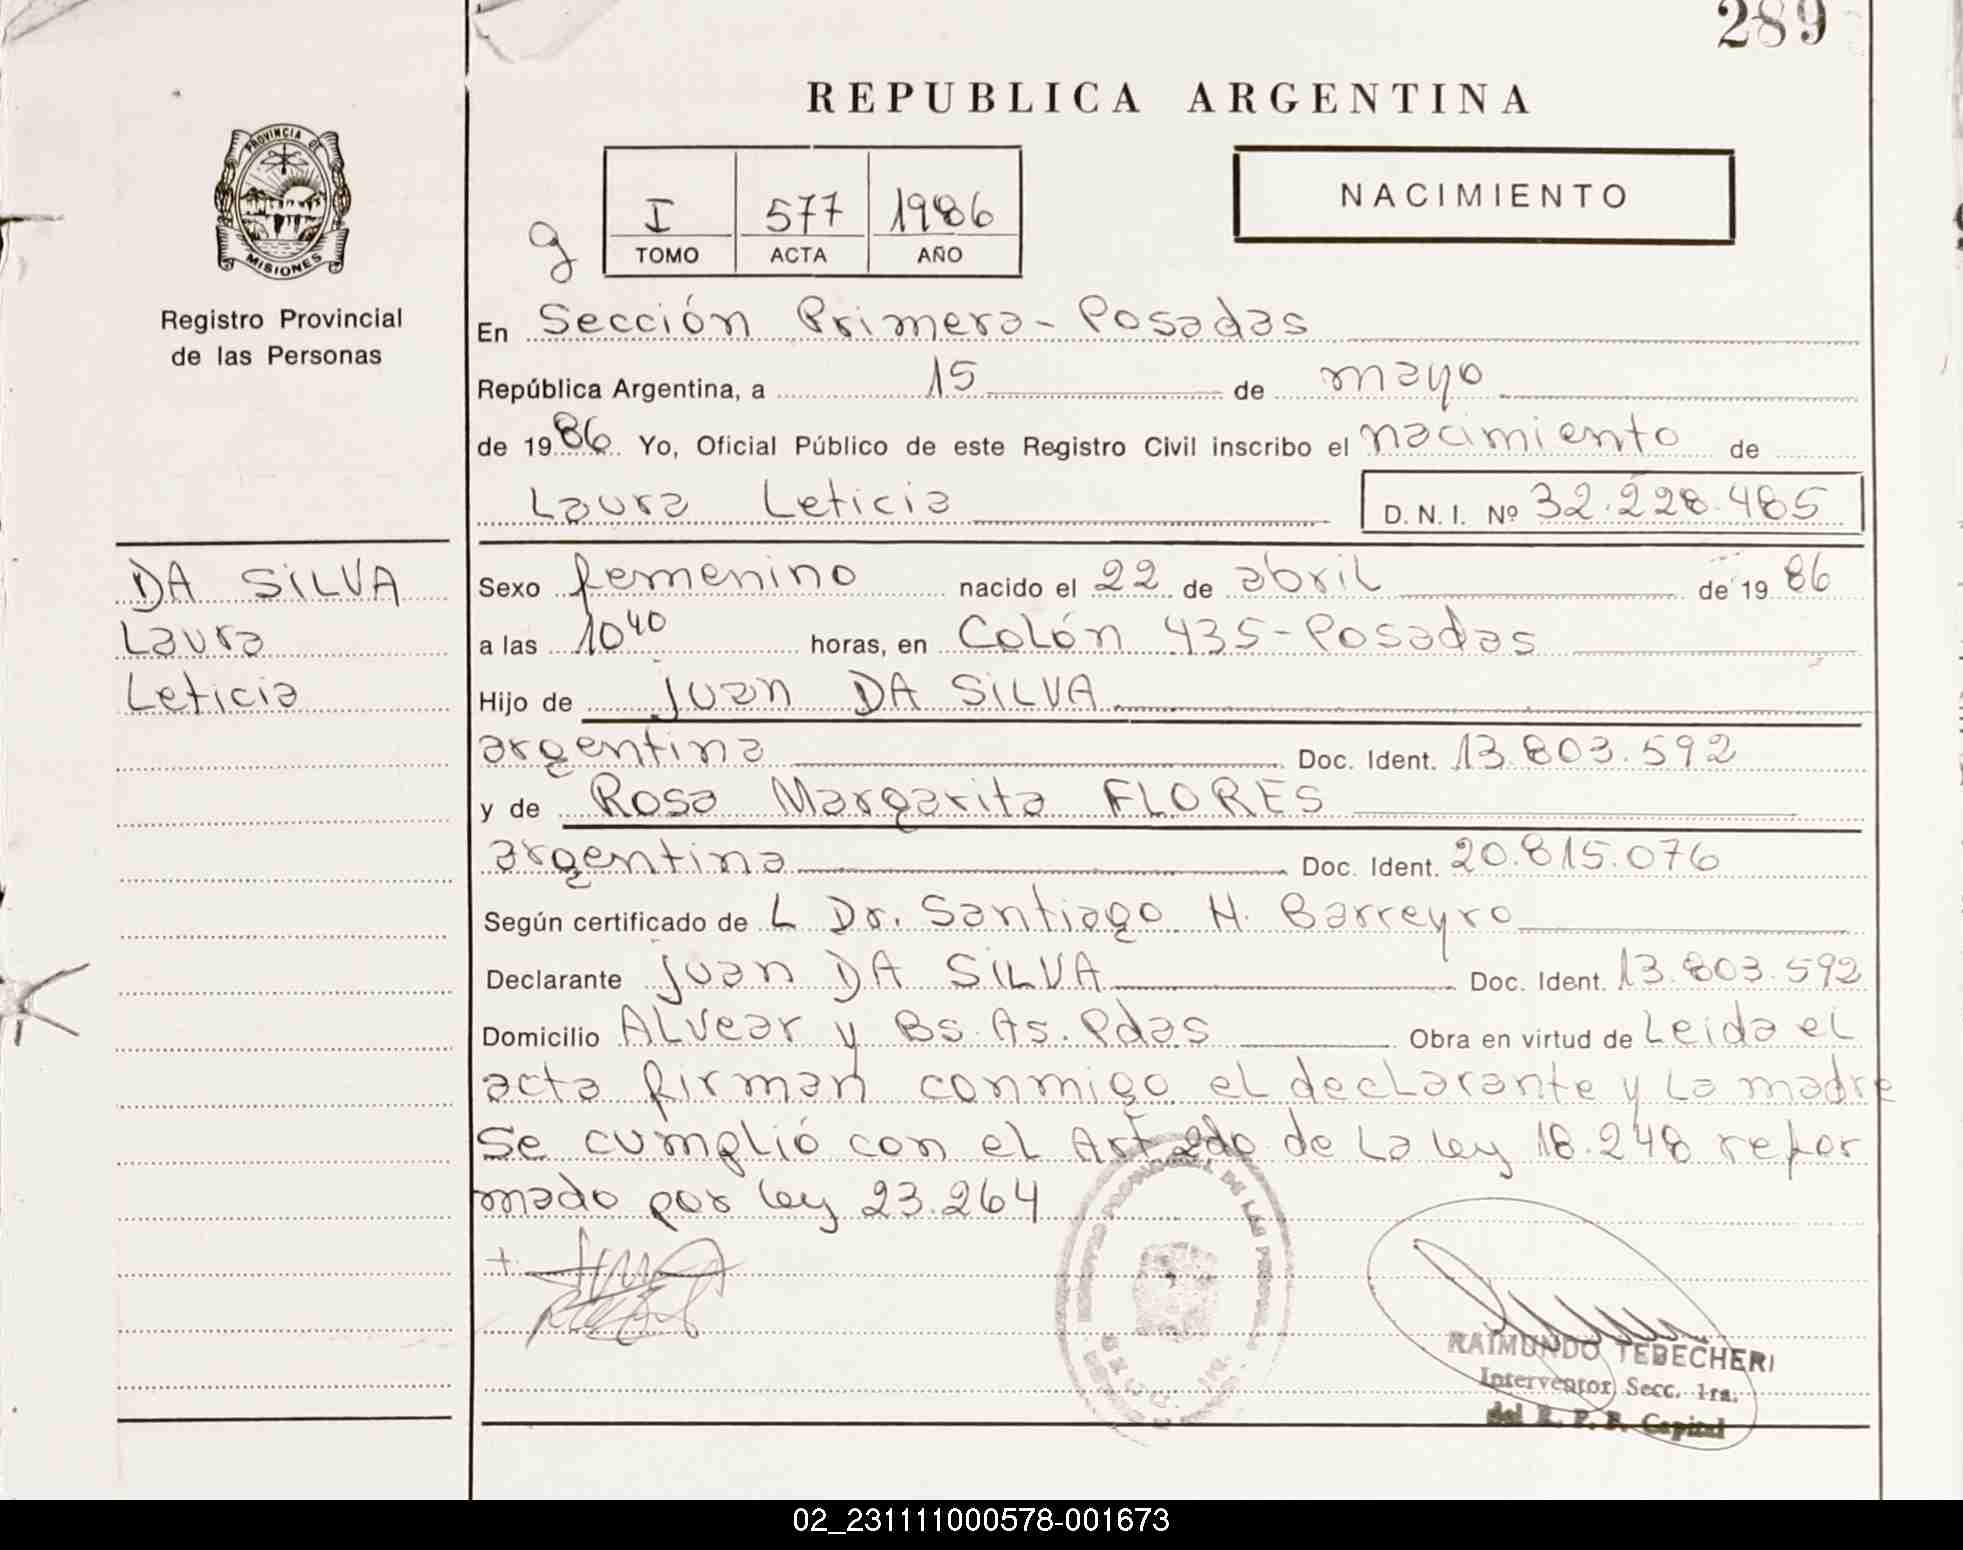 289
REPUBLICA ARGENTINA
PROVINCIA DE
MISIONES
Registro Provincial
de las Personas
g
I 577 1986
TOMO ACTA AÑO
NACIMIENTO
En Sección Primera - Posadas
República Argentina, a 15 de mayo
de 1986. Yo, Oficial Público de este Registro Civil inscribo el nacimiento de
Laura Leticia D. N. I. Nº 32.228.485
DA SILVA
Laura
Leticia
Sexo femenino nacido el 22 de abril de 1986
a las 10 40 horas, en Colón 435 - Posadas
Hijo de Juan DA SILVA
argentina Doc. Ident. 13.803.592
y de Rosa Margarita FLORES
argentina Doc. Ident. 20.815.076
Según certificado de L Dr. Santiago H. Barreyro
Declarante Juan DA SILVA Doc. Ident. 13.803.592
Domicilio Alvear y Bs. As. Pdas Obra en virtud de Leida el
acta firman conmigo el declarante y la madre
Se cumplió con el Art 2do de la ley 18.248 refor
mado por ley 23.264
DE LAS
RAIMUNDO TEBECHERI
Interventor Secc. 1ra.
del R. P. P. Capital
02_231111000578-001673